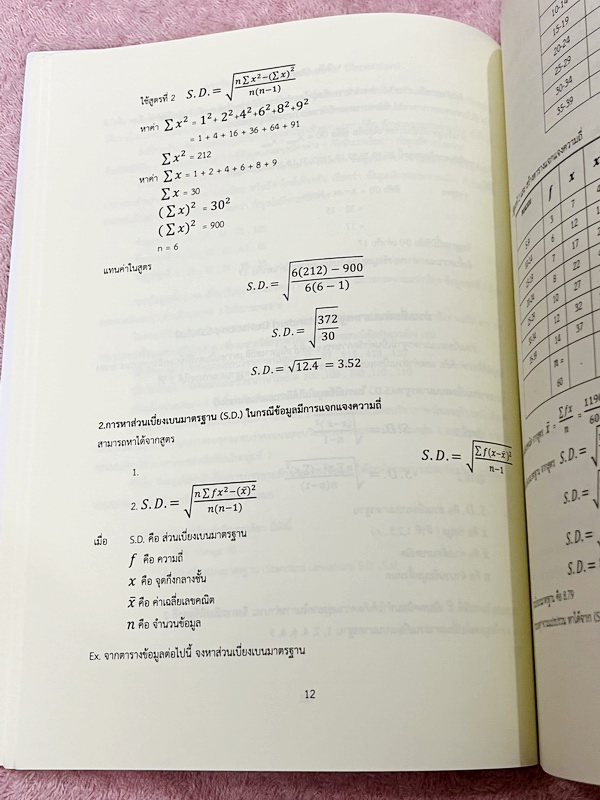 ใช้สูตรที่ 2 S.D. = √((n∑x²−(∑x)²)/(n(n−1)))
หาค่า ∑x² = 1² + 2² + 4² + 6² + 8² + 9²
= 1 + 4 + 16 + 36 + 64 + 91
∑x² = 212
หาค่า ∑x = 1 + 2 + 4 + 6 + 8 + 9
∑x = 30
(∑x)² = 30²
(∑x)² = 900
n = 6
แทนค่าในสูตร
S.D. = √((6(212) − 900)/(6(6 − 1)))
S.D. = √(372/30)
S.D. = √12.4 = 3.52
2.การหาส่วนเบี่ยงเบนมาตรฐาน (S.D.) ในกรณีข้อมูลมีการแจกแจงความถี่
สามารถหาได้จากสูตร
1. S.D. = √(∑f(x−x̄)²/(n−1))
2. S.D. = √((n∑fx²−(x̄)²)/(n(n−1)))
เมื่อ S.D. คือ ส่วนเบี่ยงเบนมาตรฐาน
f คือ ความถี่
x คือ จุดกึ่งกลางชั้น
x̄ คือ ค่าเฉลี่ยเลขคณิต
n คือ จำนวนข้อมูล
Ex. จากตารางข้อมูลต่อไปนี้ จงหาส่วนเบี่ยงเบนมาตรฐาน
12
10-14
15-19
20-24
25-29
30-34
35-39
f x
3 7
6 12
7 17
8 22
10 27
12 32
14 37
n =
60
x̄ = ∑fx/n =
S.D. =
S.D. =
S.D. =
คือ 8.79